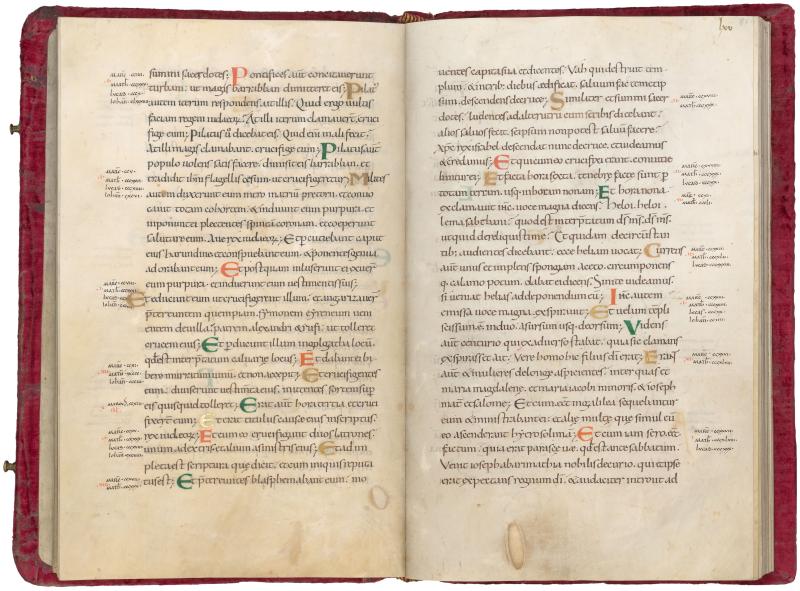 summi sacerdotes; Pontifices aut concitaverunt
turbam. ut magis barabban dimitteret eis; Pilat
autem iterum respondens ait illis. Quid ergo vultis
faciam regem iudaeorum; At illi iterum clamaverunt. cruci
fige eum; Pilatus u dicebat eis. Quid eni mali fecit.
At illi magis clamabant. crucifige eum; Pilatus aut
populo volens satisfacere. dimisit eis barabban. et
tradidit ihm flagellis cesum. ut crucifigeretur; Milites
autem duxerunt eum
cant totam cohortem. & induunt eum purpura. et
imponunt ei plectentes spineam coronam. et coeperunt
salutare eum. Ave rex iudeoru; Et percutiebant caput
eius harundine. et conspuebant eum. & ponentes genua
adorabant eum; Et postquam inluserunt ei. exuer
eum purpura. et induerunt eum vestimentis suis;
Et educunt eum ut crucifigerent illum. et angariaver
pretereuntem quempiam. Symonem cyreneum veni
entem de villa. patrem alexandri & rufi. ut tolleret
crucem eius; Et pducunt illum in golgatha locu
qd est interpratum calvariae locus; Et dabant ei bi
bere murratum vinu. et non accepit; Et crucifigentes
eum. diviserunt vestimenta eius. mittentes sortem sup
eis quis quid tolleret; Erat aut hora tertia. et cruci
fixer eum; Et erat titulus cause eius inscriptus.
rex iudeoru; Et cum eo crucifigunt duos latrones.
unum a dextris. et alium a sinistris eius; Et adim
pleta est scriptura que dicit. et cum iniquis reputa
tus est; Et pretereuntes blasphemabant eum. mo
ventes capita sua et dicentes. Vah qui destruit tem
plum. & in trib; diebus aedificat. salvum fac temetip
sum. descendens de cruce; Similiter et summi sacer
dotes. ludentes ad alterutru cum scribis dicebant.
alios salvos fecit. se ipsum non potest salvum facere.
Xpc rex israhel. descendat nunc de cruce. ut videamus
& credamus; Et qui cum eo crucifixi erant. convitia
bantur ei; Et facta hora sexta. tenebre facte sunt p
totam terram. usq; in horam nonam; Et hora nona
exclamavit ihc. voce magna dicens. Heloi. heloi.
lema sabacthani. quod est interpretatum ds ms. ds ms.
ut quid dereliquisti me. Et quidam de circumstan
tib; audientes dicebant. ecce heliam vocat; Currens
aut unus et implens spongiam aceto. circumponens
q; calamo. potum dabat ei dicens. Sinite videamus.
si veniat helias ad deponendum eu; Ihc autem
emissa voce magna. expiravit; Et velum templi
scissum e. in duo. a sursum usq; deorsum; Videns
aut centurio qui ex adverso stabat. quia sic clamans
expirasset. ait. Vere homo hic filius di erat; Erant
aut & mulieres de longe aspicientes. inter quas et
maria magdalene. et maria iacobi minoris. & ioseph
mat. et salome; Et cum eet in galilea sequebantur
eum & ministrabant ei. et aliae multe que simul cu
eo ascenderant hyerosolima; Et cum iam sero eet
factum. quia erat parasceve. qd est ante sabbatum.
Venit ioseph ab arimathia nobilis decurio. qui et ipse
erat expectans regnum di. & audacter introiit ad